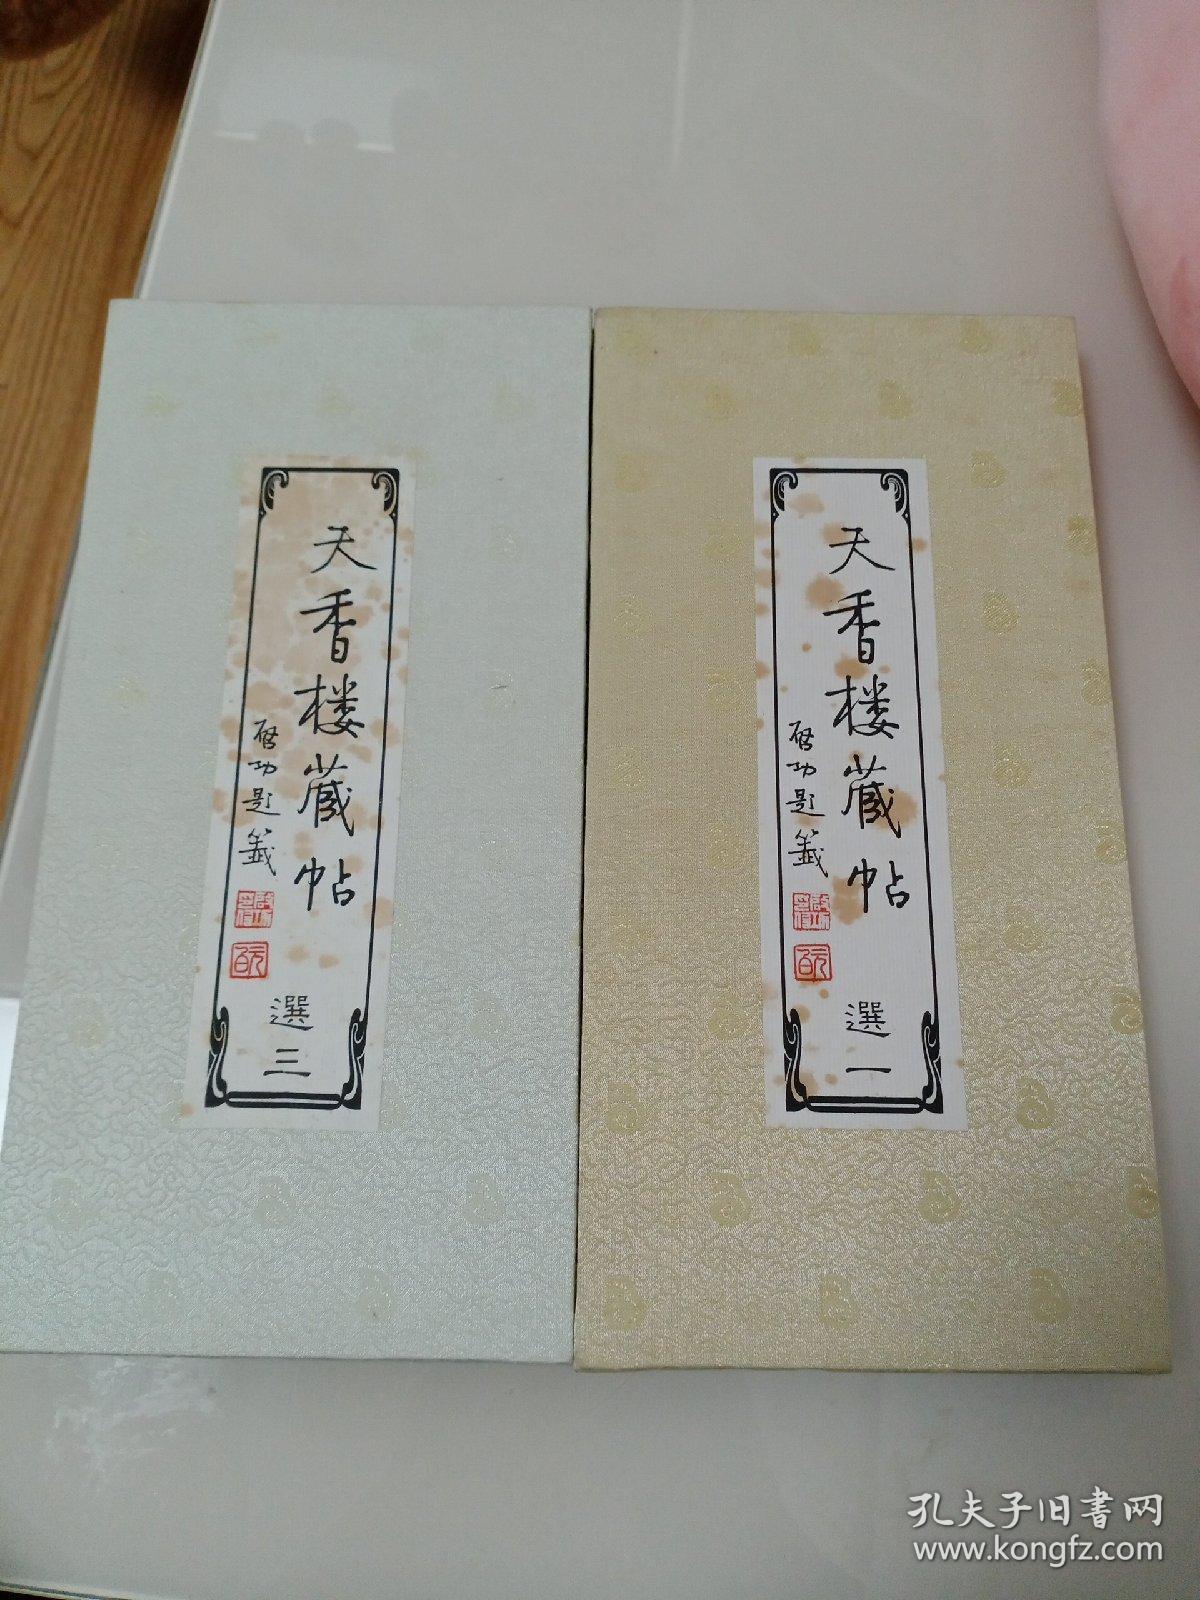 天香楼藏帖
启功题签
選三
天香楼藏帖
启功题签
選一
孔夫子旧書网
www.kongfz.com